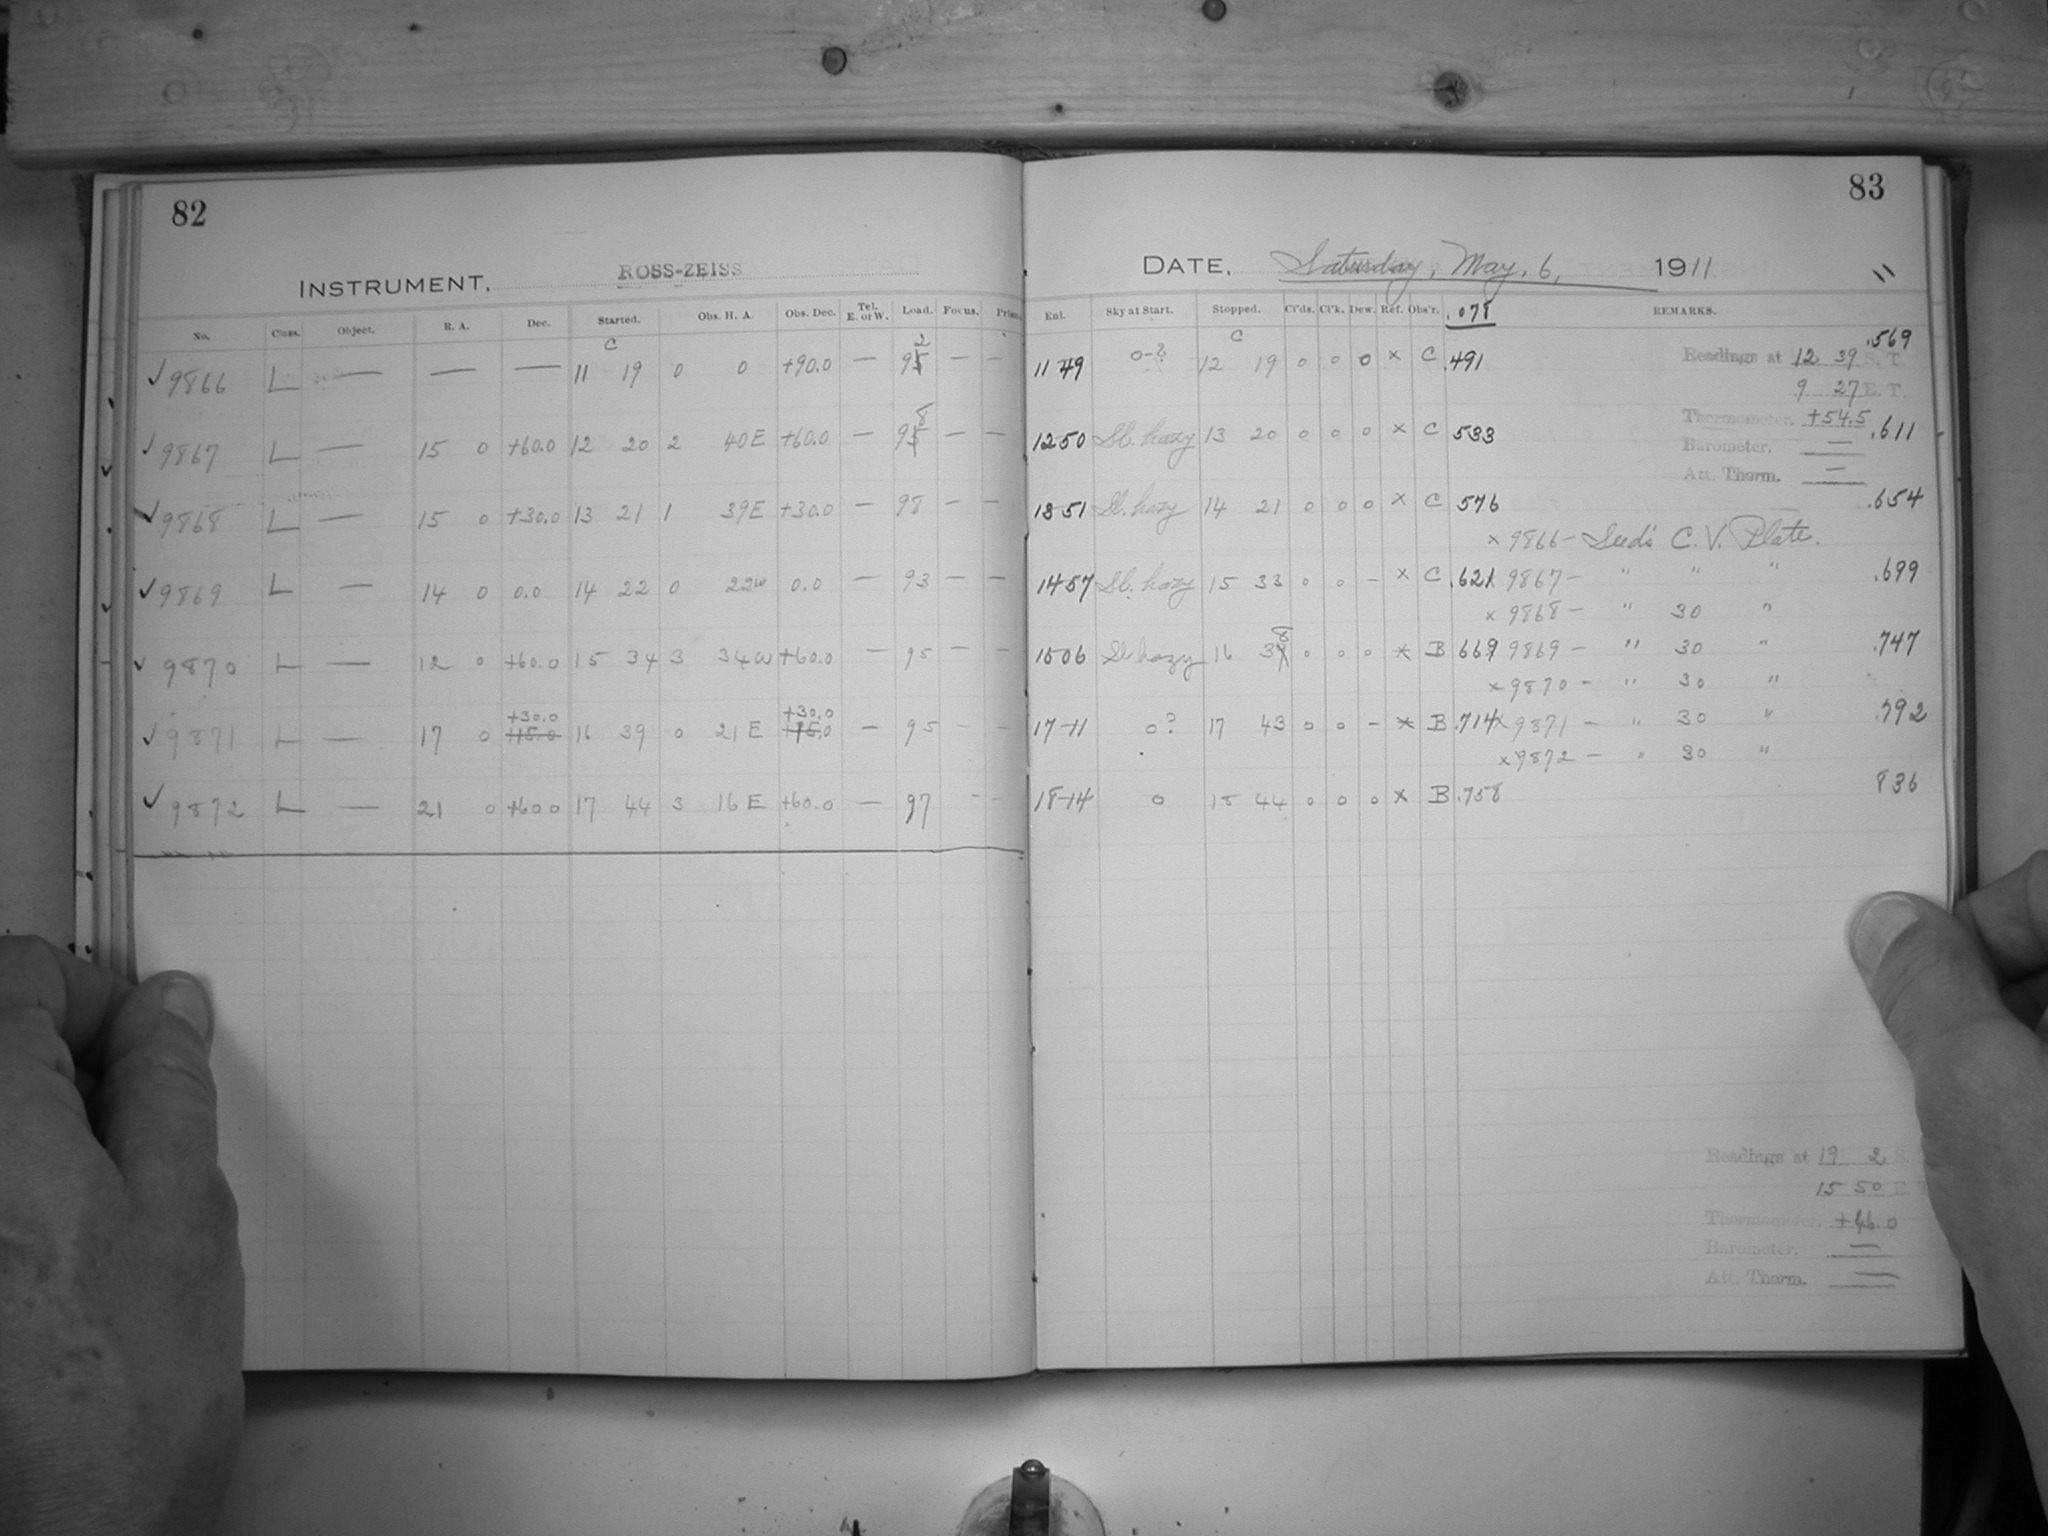 82
INSTRUMENT, ROSS-ZEISS
No. Class. Object. R. A. Dec. Started. Obs. H. A. Obs. Dec. Tel. E. or W. Load. Focus. Prism
C 2
✓ 9866 L — — — 11 19 0 0 +90.0 — 95 — —
8
✓ 9867 L — 15 0 +60.0 12 20 2 40E +60.0 — 95 — —
✓ 9868 L — 15 0 +30.0 13 21 1 39E +30.0 — 98 — —
✓ 9869 L — 14 0 0.0 14 22 0 22W 0.0 — 93 — —
✓ 9870 L — 12 0 +60.0 15 34 3 34W +60.0 — 95 — —
+30.0 +30.0
✓ 9871 L — 17 0 +15.0 16 39 0 21 E +15.0 — 95 — —
✓ 9872 L — 21 0 +60.0 17 44 3 16 E +60.0 — 97 — —
83
DATE, Saturday, May, 6, 1911 11
Enl. Sky at Start. Stopped. Cl'ds. Cl'k. Dew. Ref. Obs'r. .078 REMARKS.
C .569
11 49 0-2 12 19 0 0 0 × C .491 Readings at 12 39 S. T.
9 27 E. T.
Thermometer. +54.5
1250 Sl. hazy 13 20 0 0 0 × C 533 .611
Barometer. —
Att. Therm. —
1351 Sl. hazy 14 21 0 0 0 × C 576 .654
× 9866 — Seed's C. V. Plate.
1457 Sl. hazy 15 33 0 0 — × C .621 × 9867 — " " " .699
× 9868 — " 30 "
8
1506 Sl hazy 16 39 0 0 0 × B 669 9869 — " 30 " .747
× 9870 — " 30 "
17-11 0? 17 43 0 0 — × B .714 × 9871 — " 30 " .792
× 9872 — " 30 "
18-14 0 18 44 0 0 0 × B .758 836
Readings at 19 2 S.
15 50 E. T
Thermometer. +46.0
Barometer. —
Att. Therm. —